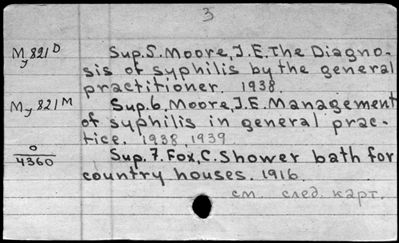 3
My 821 D Sup.5. Moore, J.E. The Diagno-
sis of syphilis by the general
practitioner. 1938.
My 821 M Sup.6. Moore, J.E. Management
of syphilis in general prac-
tice. 1938, 1939
0/4360 Sup.7. Fox, C. Shower bath for
country houses. 1916.
см. след. карт.